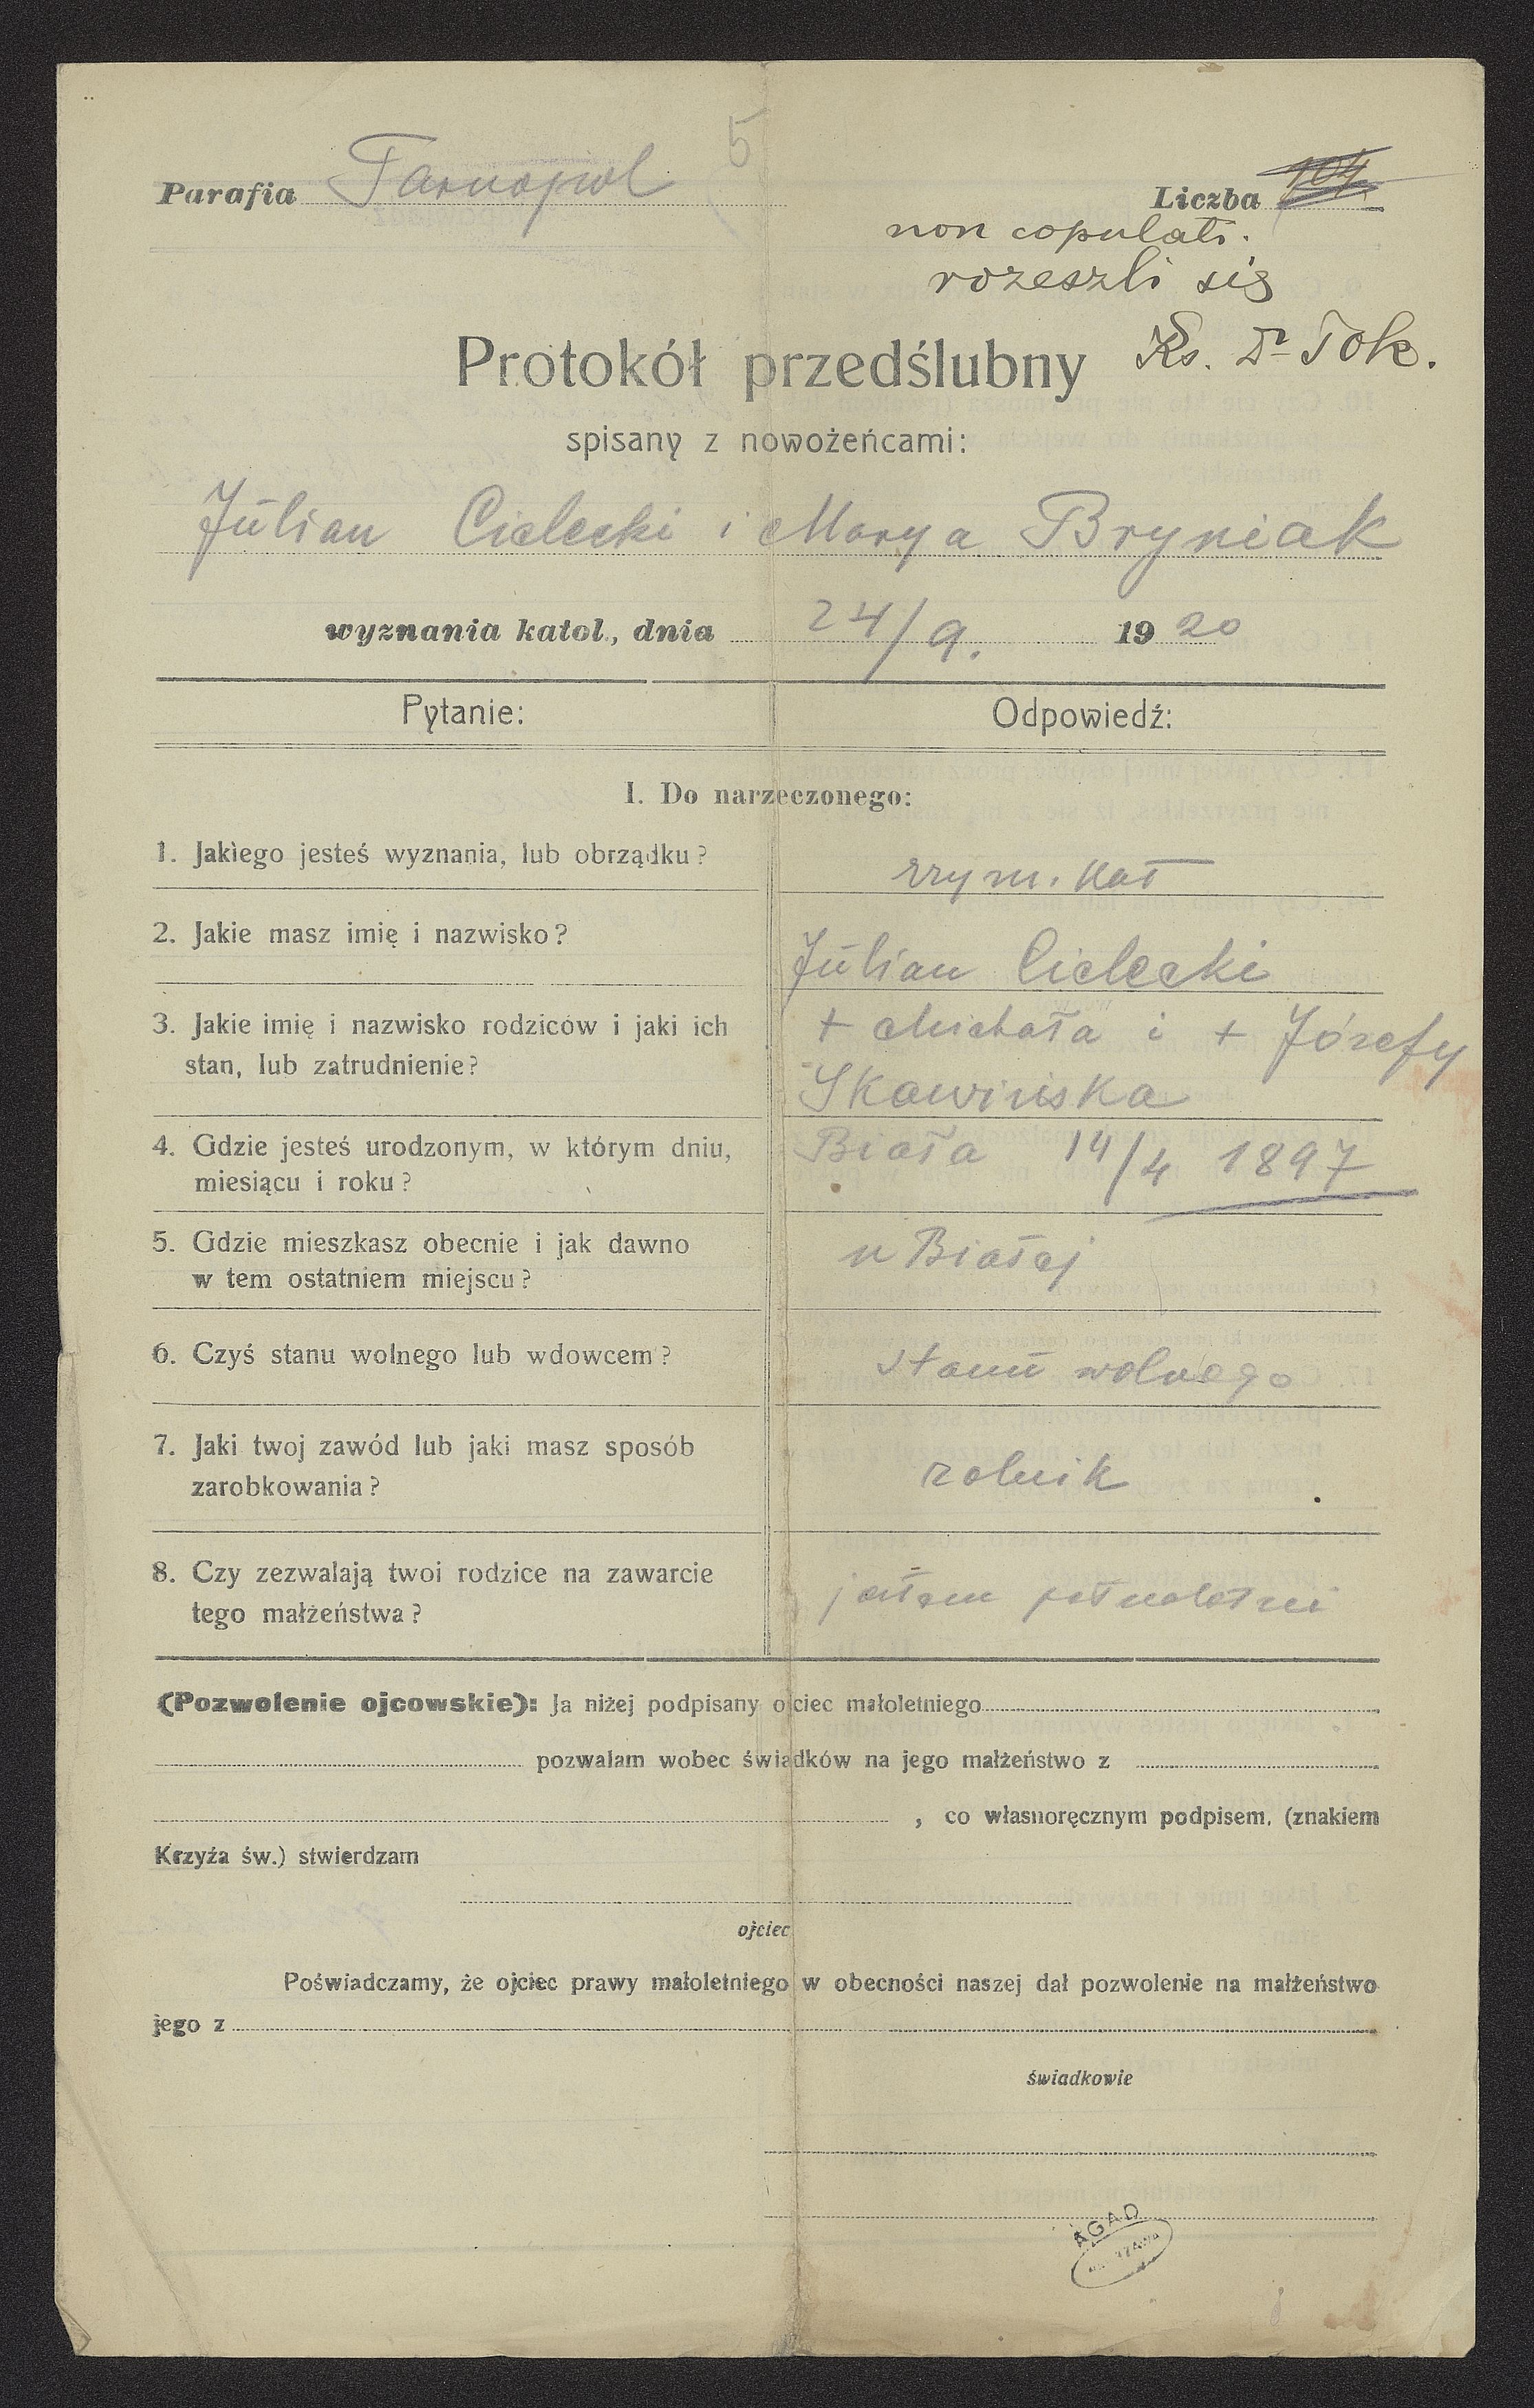 5
Parafia Tarnopol
Liczba 104
non copulati.
rozeszli się
Ks. Dr Tok.
Protokół przedślubny
spisany z nowożeńcami:
Julian Cielecki i Marya Bryniak
wyznania katol., dnia 24/9. 1920
Pytanie:
Odpowiedź:
I. Do narzeczonego:
1. Jakiego jesteś wyznania, lub obrządku?
rzym. kat
2. Jakie masz imię i nazwisko?
Julian Cielecki
3. Jakie imię i nazwisko rodziców i jaki ich
stan, lub zatrudnienie?
+ Michała i + Józefy
Skawińska
4. Gdzie jesteś urodzonym, w którym dniu,
miesiącu i roku?
Biała 14/4 1897
5. Gdzie mieszkasz obecnie i jak dawno
w tem ostatniem miejscu?
w Białej
6. Czyś stanu wolnego lub wdowcem?
stanu wolnego
7. Jaki twoj zawód lub jaki masz sposób
zarobkowania?
rolnik
8. Czy zezwalają twoi rodzice na zawarcie
tego małżeństwa?
jestem pełnoletni
(Pozwolenie ojcowskie): Ja niżej podpisany ojciec małoletniego
pozwalam wobec świadków na jego małżeństwo z
, co własnoręcznym podpisem, (znakiem
Krzyża św.) stwierdzam
ojciec
Poświadczamy, że ojciec prawy małoletniego w obecności naszej dał pozwolenie na małżeństwo
jego z
świadkowie
AGAD